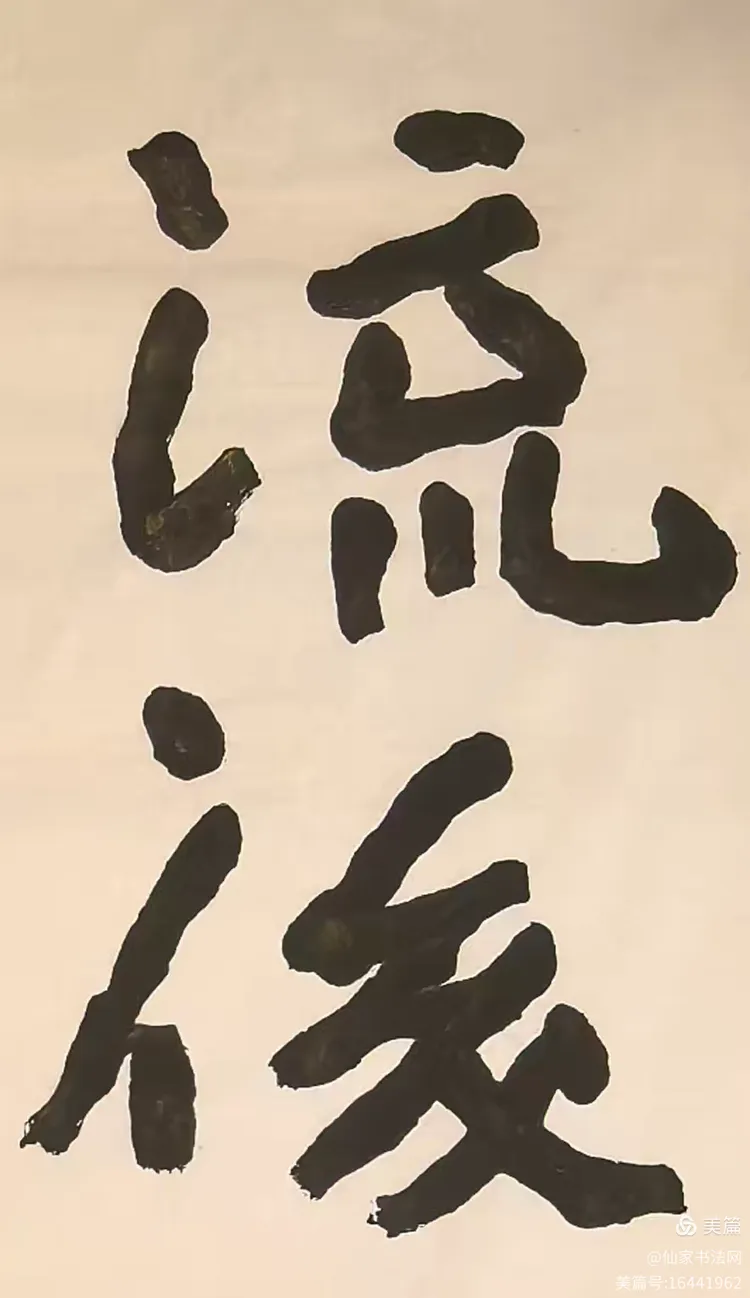 流
後
美篇
@仙家书法网
美篇号:16441962